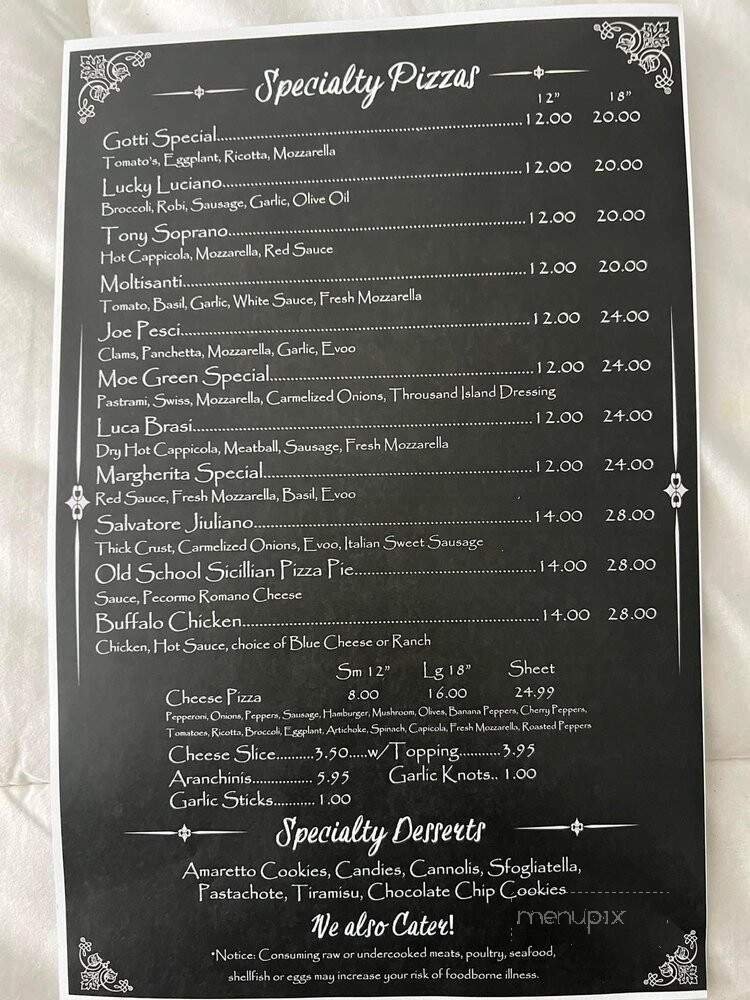 Specialty Pizzas
12" 18"
Gotti Special 12.00 20.00
Tomato's, Eggplant, Ricotta, Mozzarella
Lucky Luciano 12.00 20.00
Broccoli, Robi, Sausage, Garlic, Olive Oil
Tony Soprano 12.00 20.00
Hot Cappicola, Mozzarella, Red Sauce
Moltisanti 12.00 20.00
Tomato, Basil, Garlic, White Sauce, Fresh Mozzarella
Joe Pesci 12.00 24.00
Clams, Panchetta, Mozzarella, Garlic, Evoo
Moe Green Special 12.00 24.00
Pastrami, Swiss, Mozzarella, Carmelized Onions, Throusand Island Dressing
Luca Brasi 12.00 24.00
Dry Hot Cappicola, Meatball, Sausage, Fresh Mozzarella
Margherita Special 12.00 24.00
Red Sauce, Fresh Mozzarella, Basil, Evoo
Salvatore Jiuliano 14.00 28.00
Thick Crust, Carmelized Onions, Evoo, Italian Sweet Sausage
Old School Sicillian Pizza Pie 14.00 28.00
Sauce, Pecormo Romano Cheese
Buffalo Chicken 14.00 28.00
Chicken, Hot Sauce, choice of Blue Cheese or Ranch
Sm 12" Lg 18" Sheet
Cheese Pizza 8.00 16.00 24.99
Pepperoni, Onions, Peppers, Sausage, Hamburger, Mushroom, Olives, Banana Peppers, Cherry Peppers,
Tomatoes, Ricotta, Broccoli, Eggplant, Artichoke, Spinach, Capicola, Fresh Mozzarella, Roasted Peppers
Cheese Slice..........3.50.....w/Topping..........3.95
Aranchinis............... 5.95 Garlic Knots.. 1.00
Garlic Sticks........... 1.00
Specialty Desserts
Amaretto Cookies, Candies, Cannolis, Sfogliatella,
Pastachote, Tiramisu, Chocolate Chip Cookies
We also Cater!
menupix
*Notice: Consuming raw or undercooked meats, poultry, seafood,
shellfish or eggs may increase your risk of foodborne illness.